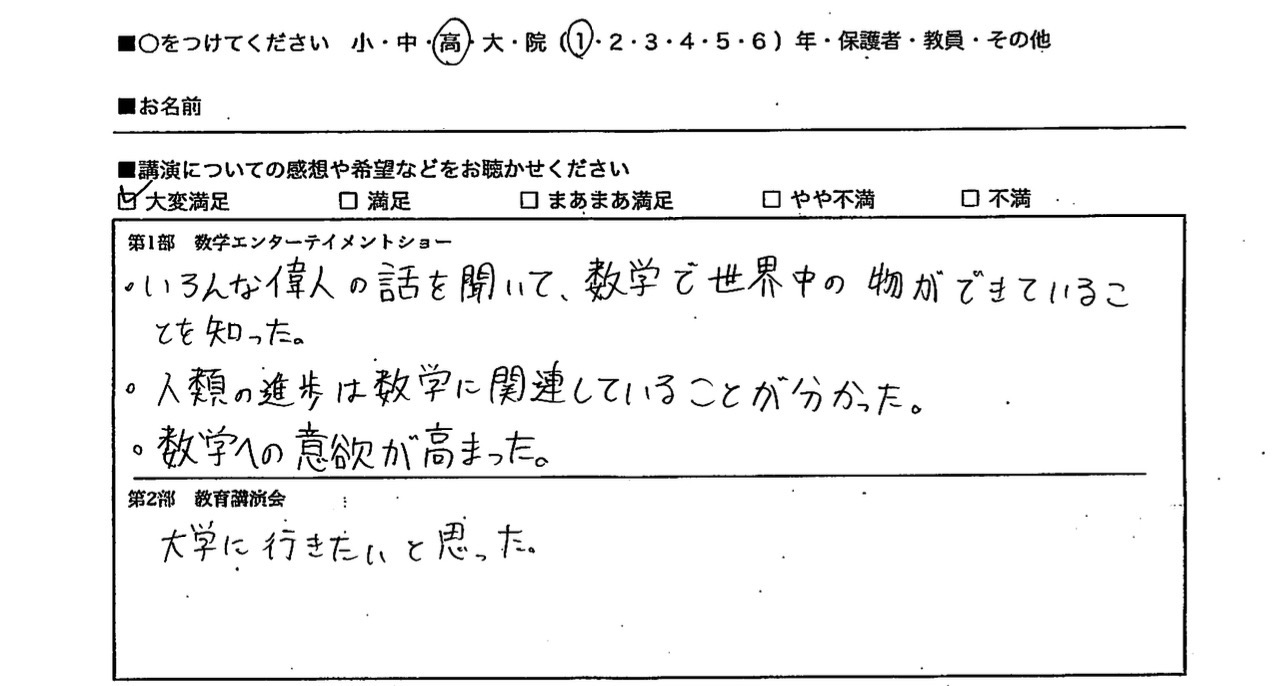 ■○をつけてください　小・中・高・大・院（1・2・3・4・5・6）年・保護者・教員・その他
■お名前
■講演についての感想や希望などをお聴かせください
☑大変満足　□満足　□まあまあ満足　□やや不満　□不満
第1部　数学エンターテイメントショー
。いろんな偉人の話を聞いて、数学で世界中の物ができているこ
とを知った。
。人類の進歩は数学に関連していることが分かった。
。数学への意欲が高まった。
第2部　教育講演会
大学に行きたいと思った。